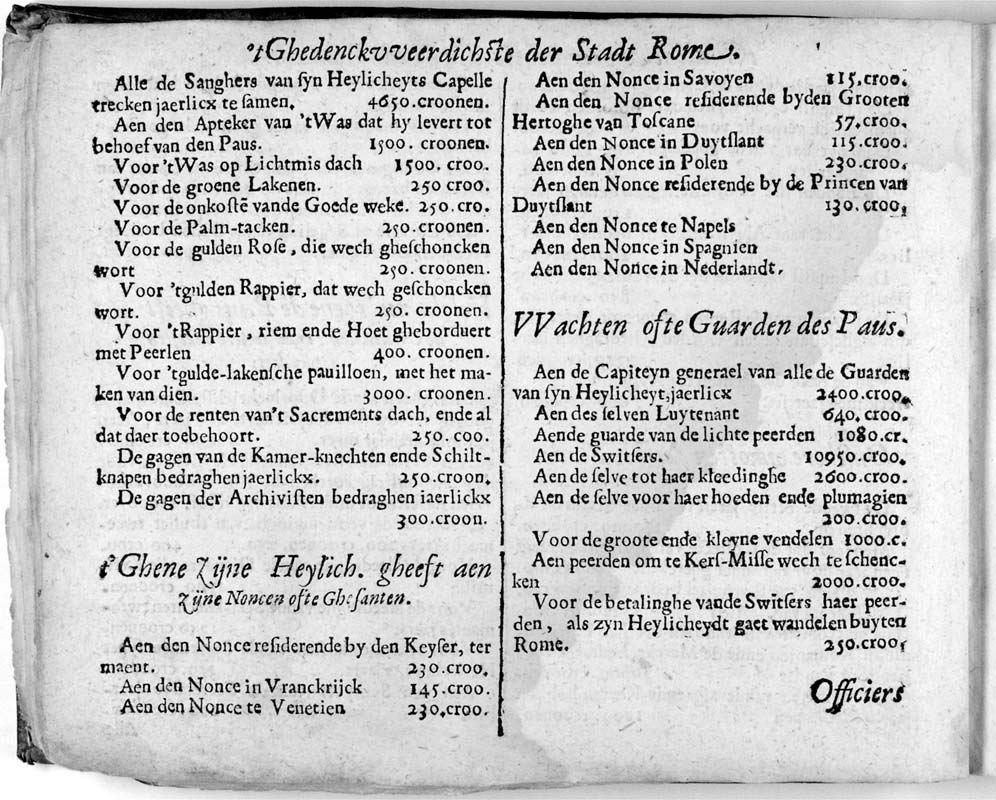 'tGhedenckvveerdichste der Stadt Rome.
Alle de Sanghers van syn Heylicheyts Capelle
trecken jaerlicx te samen. 4650.croonen.
Aen den Apteker van 'tWas dat hy levert tot
behoef van den Paus. 1500. croonen.
Voor 'tWas op Lichtmis dach 1500. croo.
Voor de groene Lakenen. 250 croo.
Voor de onkostē vande Goede weke. 250. cro.
Voor de Palm-tacken. 250.croonen.
Voor de gulden Rose, die wech gheschoncken
wort 250. croonen.
Voor 'tgulden Rappier, dat wech geschoncken
wort. 250. croonen.
Voor 'tRappier, riem ende Hoet gheborduert
met Peerlen 400. croonen.
Voor 'tgulde-lakensche pauilloen, met het ma-
ken van dien. 3000. croonen.
Voor de renten van't Sacrements dach, ende al
dat daer toebehoort. 250. coo.
De gagen van de Kamer-knechten ende Schilt-
knapen bedraghen jaerlickx. 250.croon.
De gagen der Archivisten bedraghen iaerlickx
300.croon.
t'Ghene Zijne Heylich. gheeft aen
Zijne Noncen ofte Ghesanten.
Aen den Nonce residerende by den Keyser, ter
maent. 230.croo.
Aen den Nonce in Vranckrijck 145.croo.
Aen den Nonce te Venetien 230.croo.
Aen den Nonce in Savoyen 115.croo.
Aen den Nonce residerende byden Grooten
Hertoghe van Toscane 57.croo.
Aen den Nonce in Duytslant 115.croo.
Aen den Nonce in Polen 230.croo.
Aen den Nonce residerende by de Princen van
Duytslant 130. croo.
Aen den Nonce te Napels
Aen den Nonce in Spagnien
Aen den Nonce in Nederlandt.
VVachten ofte Guarden des Paus.
Aen de Capiteyn generael van alle de Guarden
van syn Heylicheyt, jaerlicx 2400.croo.
Aen des selven Luytenant 640. croo.
Aende guarde van de lichte peerden 1080.cr.
Aen de Switsers. 10950.croo.
Aen de selve tot haer kleedinghe 2600.croo.
Aen de selve voor haer hoeden ende plumagien
200.croo.
Voor de groote ende kleyne vendelen 1000.c.
Aen peerden om te Kers-Misse wech te schenc-
ken 2000.croo.
Voor de betalinghe vande Switsers haer peer-
den, als zyn Heylicheydt gaet wandelen buyten
Rome. 250.croo.
Officiers